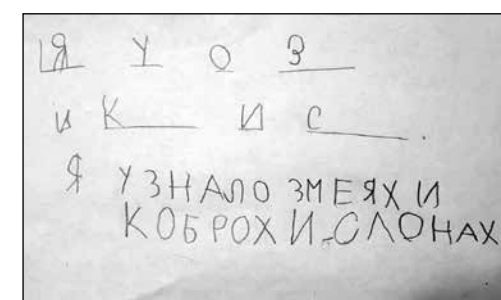 Я У О З
и К И С.
Я УЗНАЛО ЗМЕЯХ И
КОБРОХ И СЛОНАХ